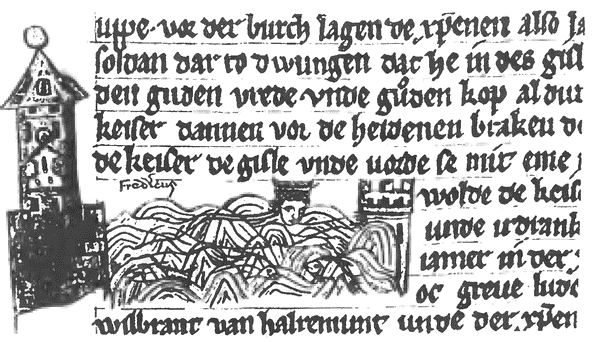 uppe· vor der burch lagen de xp̄enen also la
soldan dar to dwungen dat he in des gisl
den guden vrede vnde gůden kop al dur
keiser dannen vor de heidenen braken de
de keiser de gisle vnde vorde se mit eme
wolde de keis
unde irdrank
iamer in der
oc greve ludo
wilbrant van halremunt unde der xp̄en